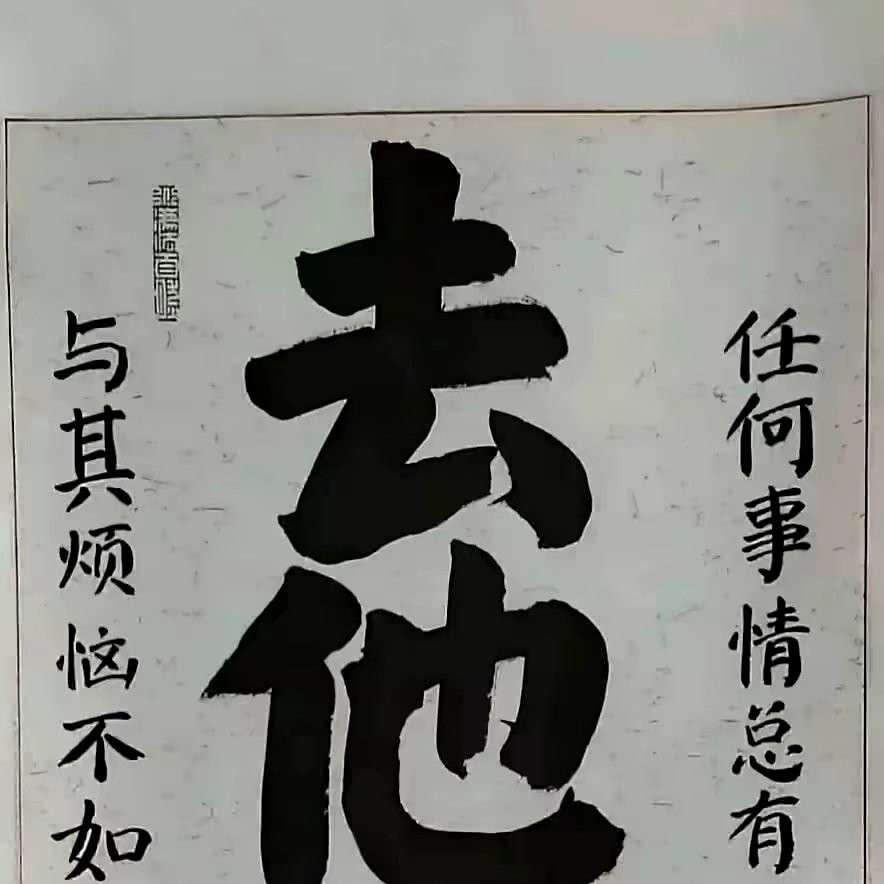 任何事情总有
去他
与其烦恼不如